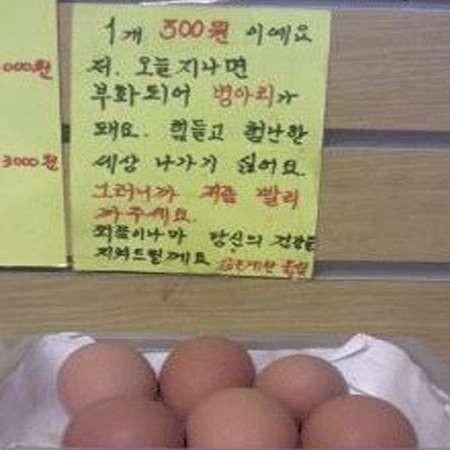 1개 300원 이에요
저. 오늘 지나면
부화되어 병아리가
돼요. 힘들고 험난한
세상 나가기 싫어요.
그러니까 저를 빨리
까주세요.
죄좀이나마 당신의 건강을
지켜드릴께요
000원
3000원